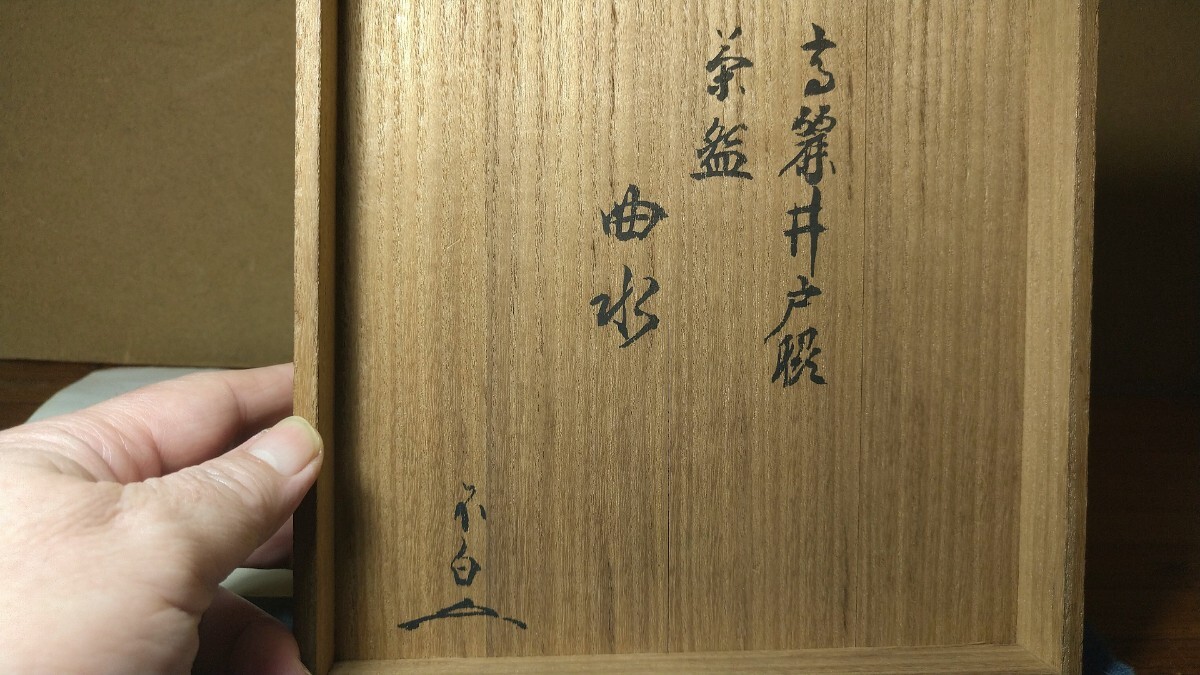 高麗井戸脇
茶盌
曲水
不白